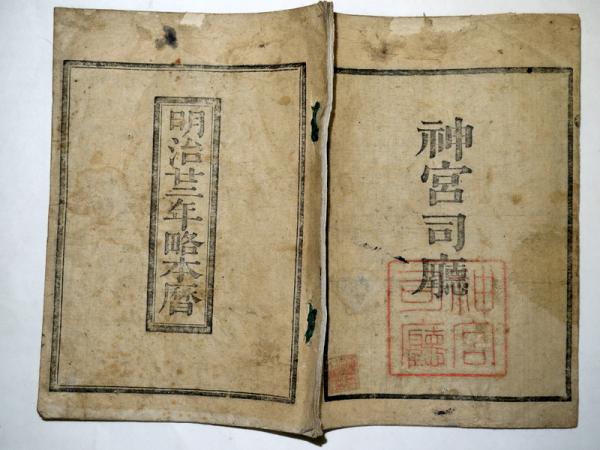 神宮司廳
神宮
司廳
明治廿三年略本暦